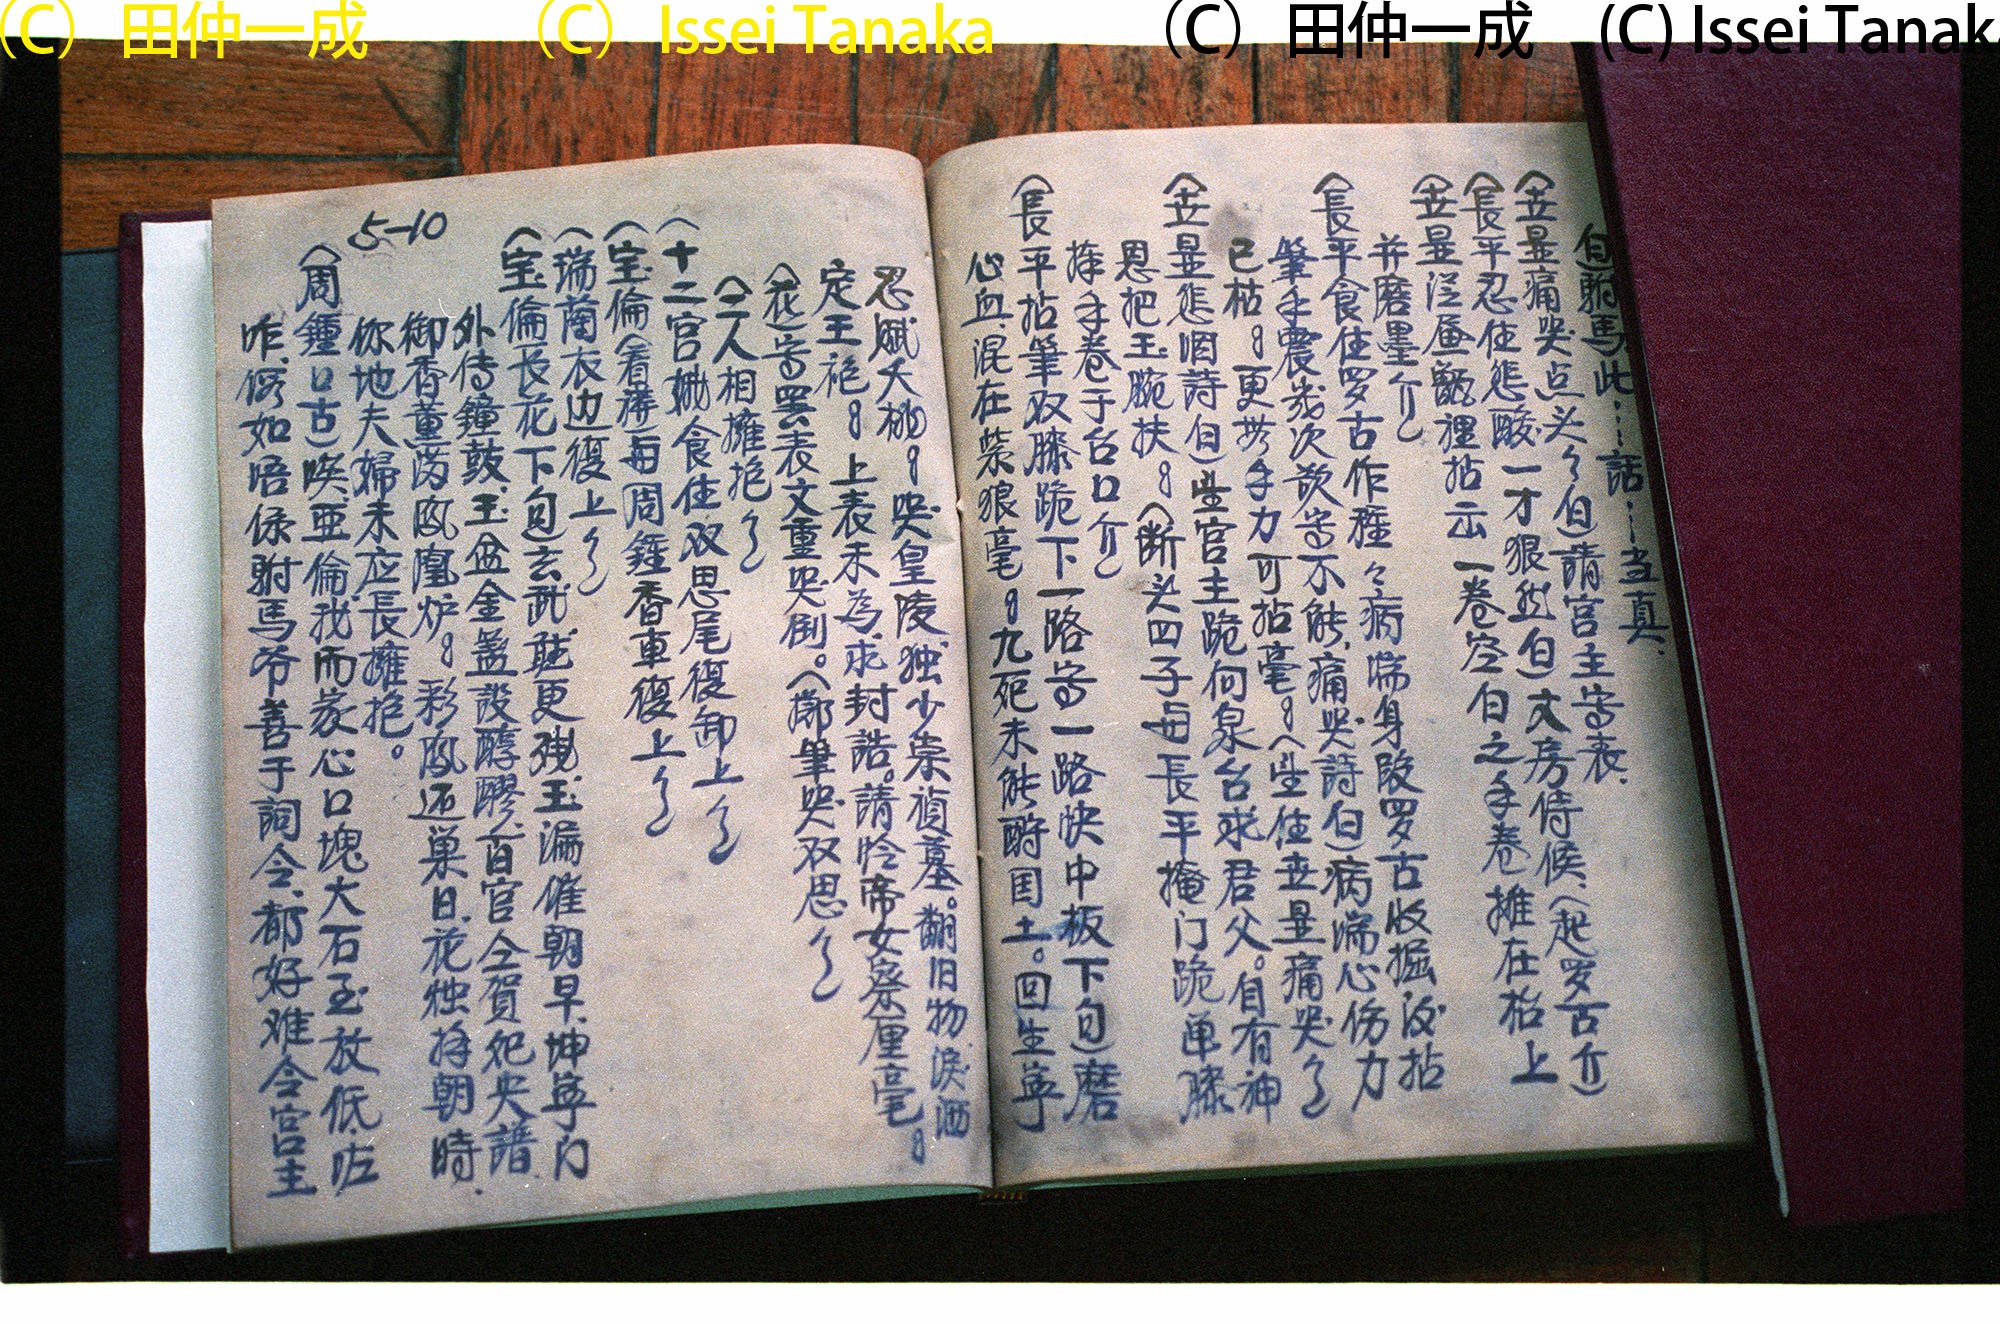 (C) 田仲一成
(C) Issei Tanaka
(C) 田仲一成
(C) Issei Tanaka
白駙馬此…話…当真、
(世显痛哭点头々白)請宫主写表、
(長平忍住悲酸一才狠然白)文房侍候、(起罗古介)
(世显 裡拈示一卷空白之手卷摊在枱上
并磨墨介)
(長平食住罗古作種々病喘身段罗古收掘後拈
筆手震幾次欲写不能、痛哭詩白)病喘心伤力
已枯。更無手力可拈毫。(坐住世显痛哭介)
(世显悲咽詩白)坐宫主跪向泉台求君父。自有神
恩把玉腕扶。(断头四子)与長平掩门跪单膝
捧手卷于台口介)
(長平拈筆双膝跪下一路写一路快中板下句)磨
心血、混在紫狼毫。九死未能酹国土。回生寧
忍賦夭桃。哭皇陵、独少崇禎墓。翻旧物淚洒
定王袍。上表未為、求封誥。請怜帝女察厘毫。
(花)写罢表文重哭倒。(擲筆哭双思介)
(二人相擁抱介)
(十二宫娥食住双思尾復卸上介)
(宝倫(看褲)与周鍾香車復上介)
(瑞蘭衣边復上介)
(宝倫长花下句)玄武、疑更残玉漏催朝早、坤寧门
外传鐘鼓、玉盆金盏設醇醪、百官仝賀祀央譜、
御香薰满凤凰炉。彩凤还巢日、花独捧朝時、
你地夫婦未应長擁抱。
5-10
(周鍾口古)唉、亚倫我而家心口塊大石至放低、咗
咋、假如唔係駙馬爷善于詞令、都好难令宫主